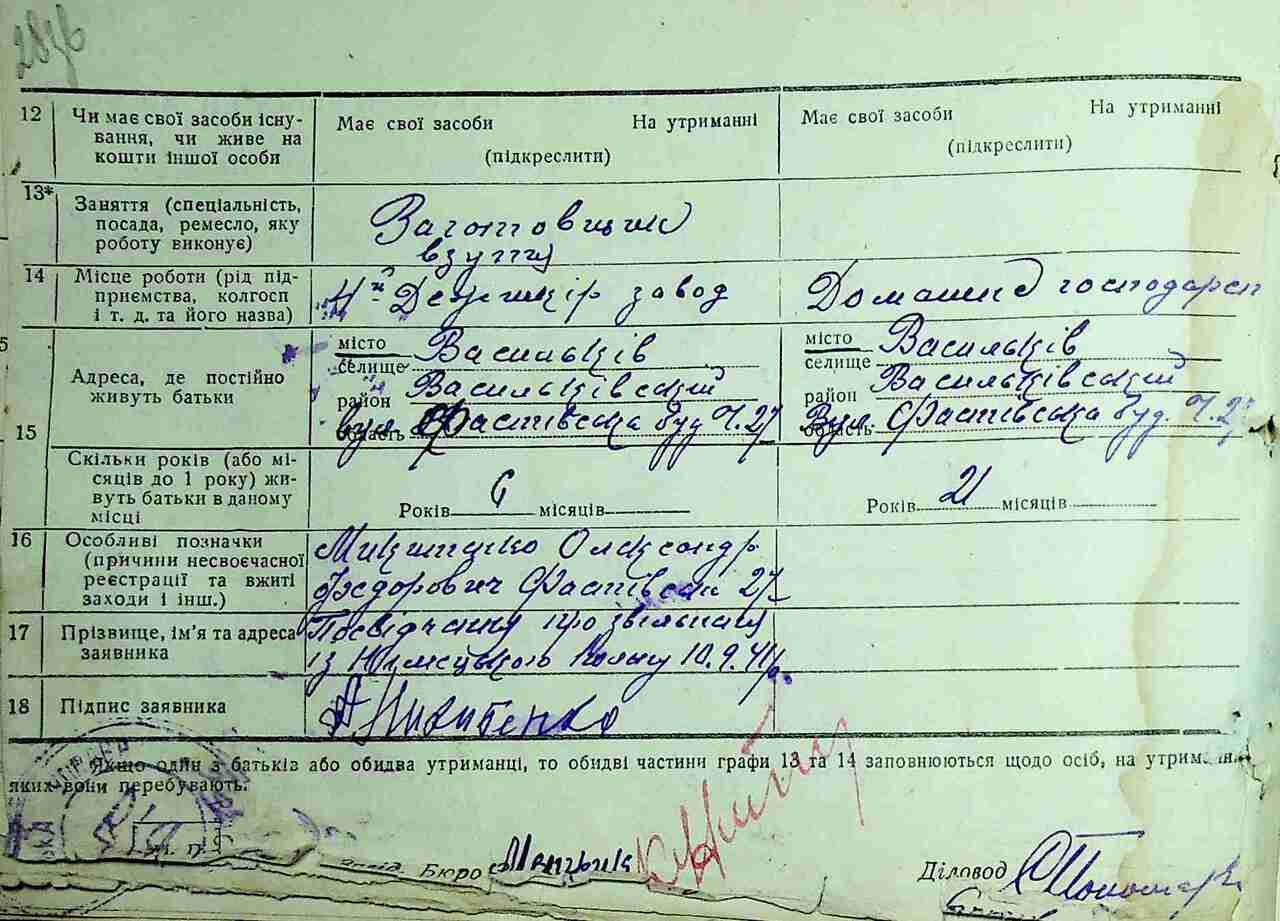 12 Чи має свої засоби існу-
вання, чи живе на
кошти іншої особи
Має свої засоби На утриманні
(підкреслити)
Має свої засоби На утриманні
(підкреслити)
13* Заняття (спеціальність,
посада, ремесло, яку
роботу виконує)
Заготовщик
взуття
14 Місце роботи (рід під-
приємства, колгосп
і т. д. та його назва)
завод
Домашнє господарст
15 Адреса, де постійно
живуть батьки
місто Васильків
селище
район Васильківський
область вул. Фастівська буд Ч. 27
місто Васильків
селище
район Васильківський
область Вул. Фастівська буд. Ч. 27
Скільки років (або мі-
сяців до 1 року) жи-
вуть батьки в даному
місці
Років 6 місяців
Років 21 місяців
16 Особливі позначки
(причини несвоєчасної
реєстрації та вжиті
заходи і інш.)
Микитенко Олександр
Федорович Фастівська 27
17 Прізвище, ім'я та адреса
заявника
Посвідчення про звільнення
із Німецького полону 10.9.41р.
18 Підпис заявника
Микитенко
Якщо один з батьків або обидва утриманці, то обидві частини графи 13 та 14 заповнюються щодо осіб, на утриманні
яких вони перебувають.
Бюро
Діловод